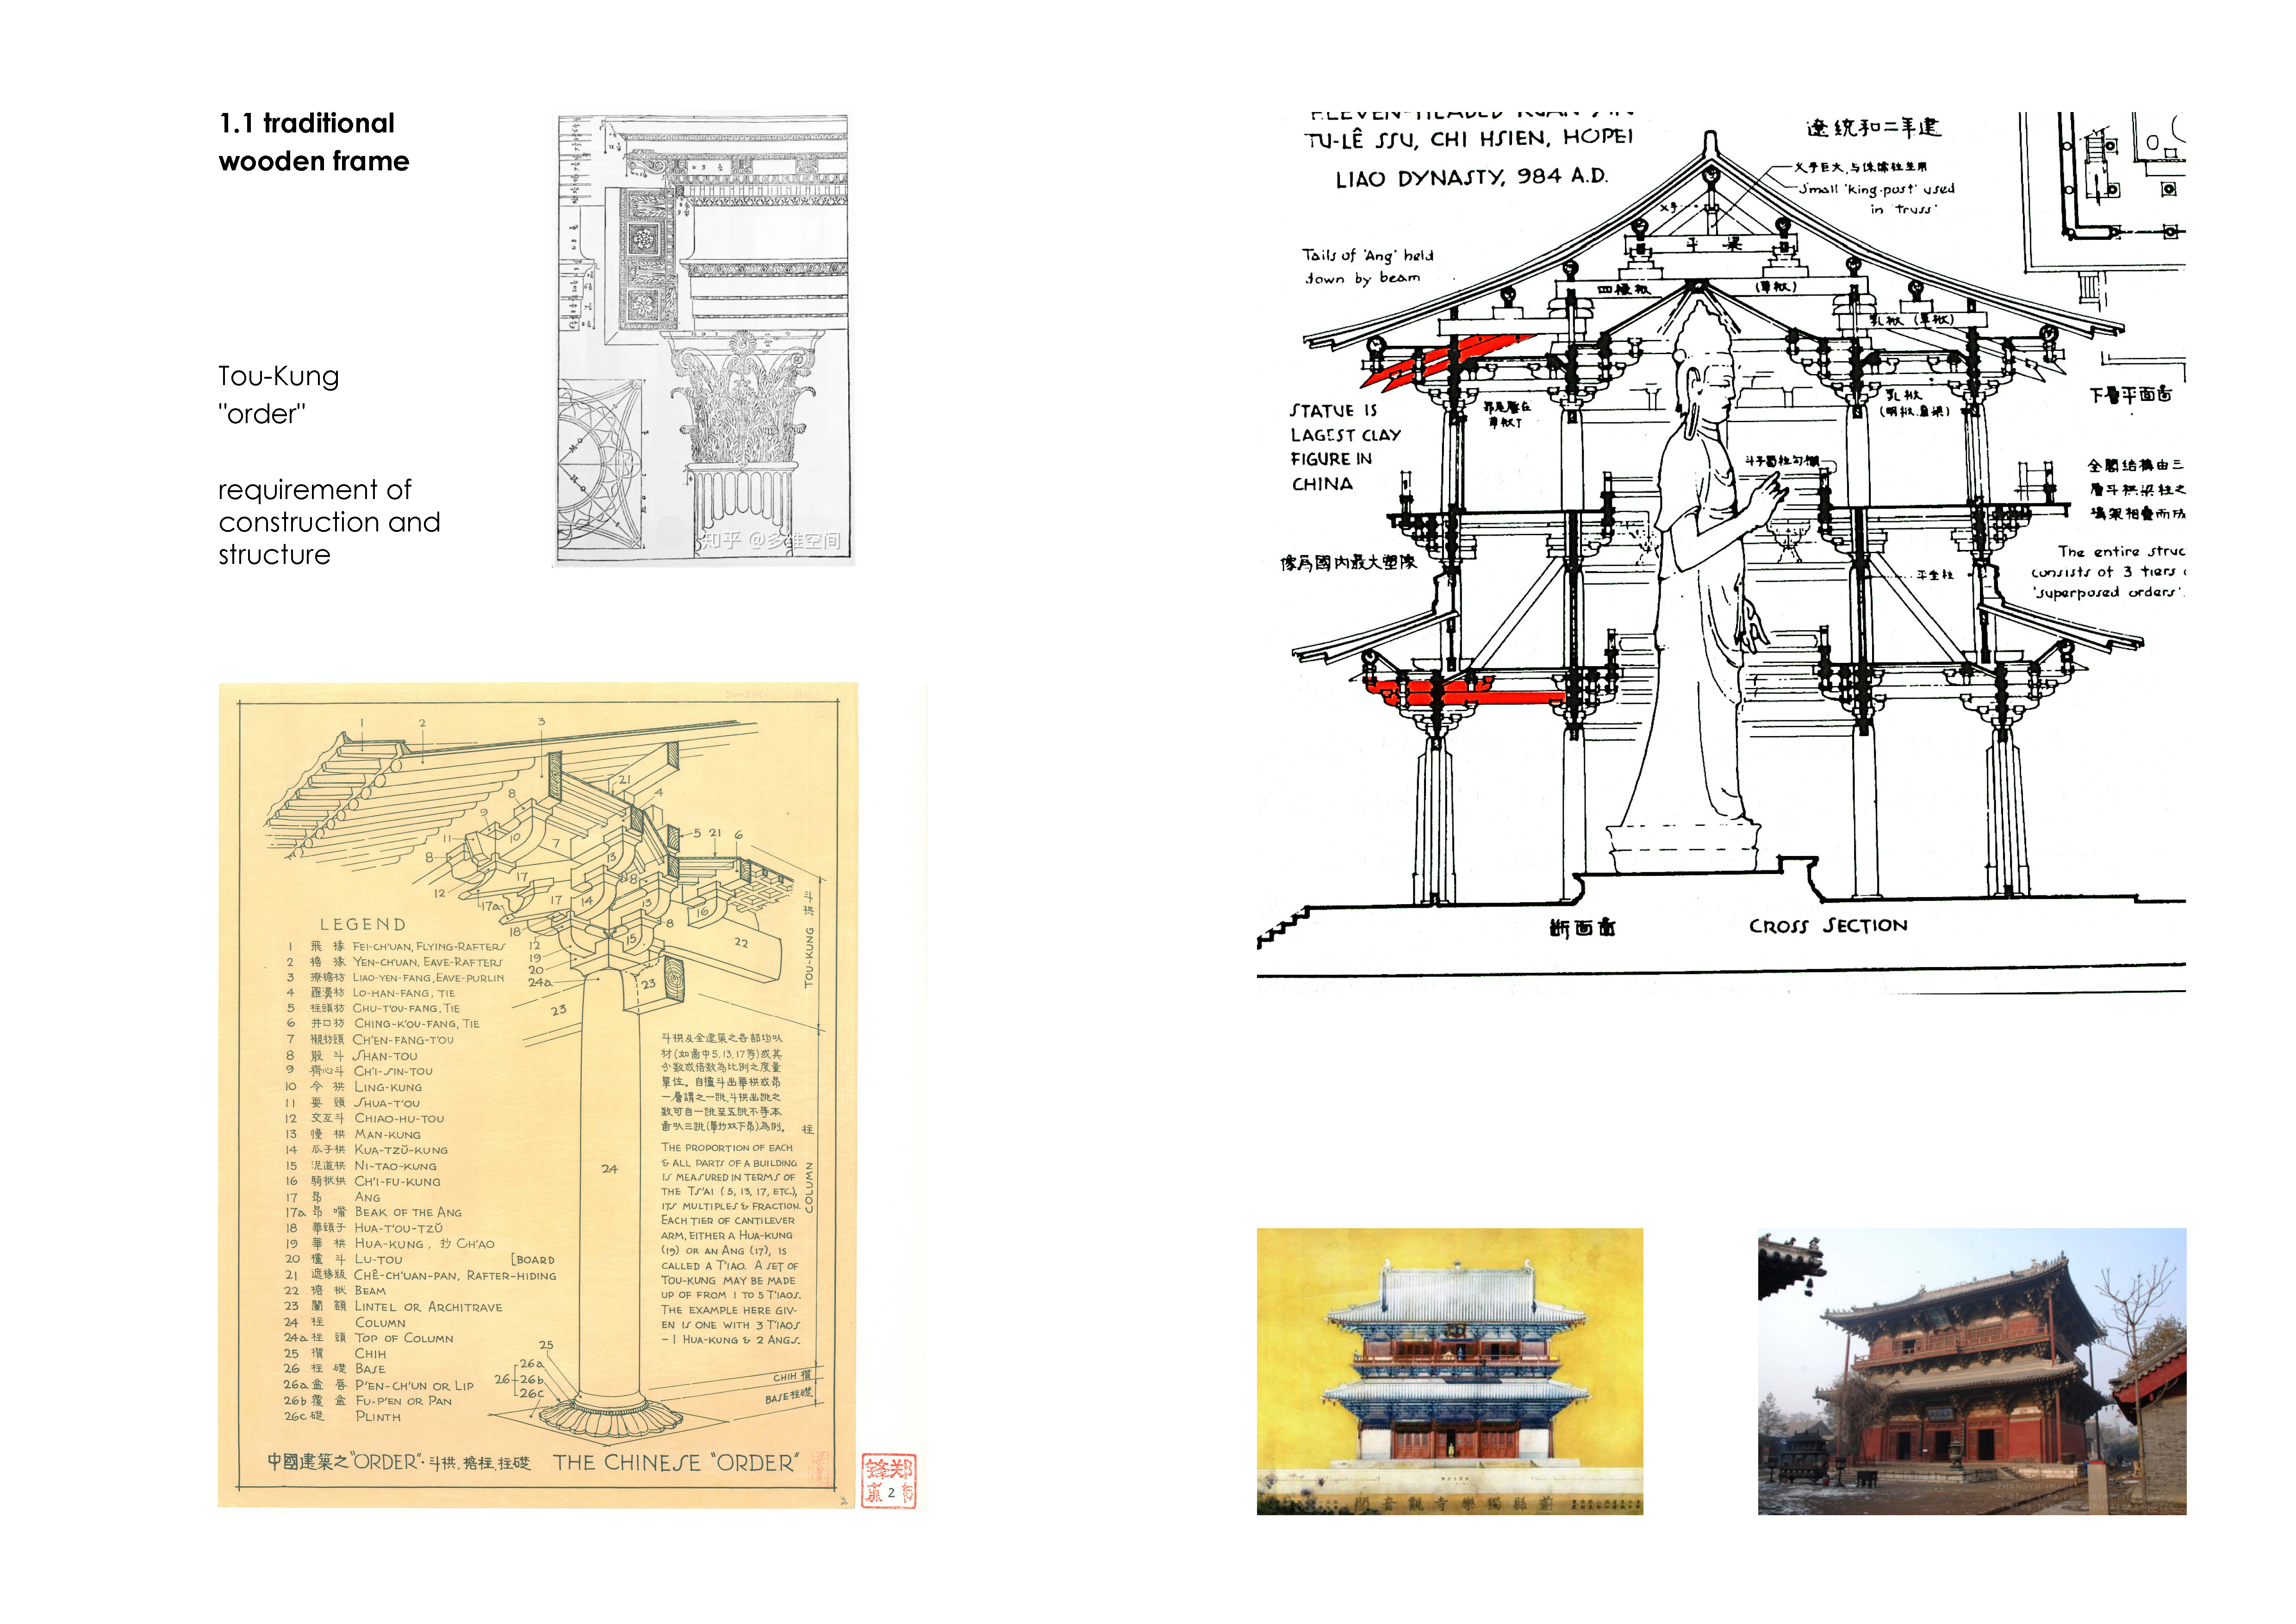 1.1 traditional
wooden frame
Tou-Kung
"order"
requirement of
construction and
structure
知乎 @多维空间
LEGEND
1 飛椽 FEI-CH'UAN, FLYING-RAFTERS
2 檐椽 YEN-CH'UAN, EAVE-RAFTERS
3 撩檐枋 LIAO-YEN-FANG, EAVE-PURLIN
4 羅漢枋 LO-HAN-FANG, TIE
5 柱頭枋 CHU-T'OU-FANG, TIE
6 井口枋 CHING-K'OU-FANG, TIE
7 襯枋頭 CH'EN-FANG-T'OU
8 散斗 SHAN-TOU
9 齊心斗 CH'I-SIN-TOU
10 令栱 LING-KUNG
11 耍頭 SHUA-T'OU
12 交互斗 CHIAO-HU-TOU
13 慢栱 MAN-KUNG
14 瓜子栱 KUA-TZŬ-KUNG
15 泥道栱 NI-TAO-KUNG
16 騎栿栱 CH'I-FU-KUNG
17 昂 ANG
17a 昂嘴 BEAK OF THE ANG
18 華頭子 HUA-T'OU-TZŬ
19 華栱 HUA-KUNG, 抄 CH'AO
20 櫨斗 LU-TOU
21 遮椽版 CHÊ-CH'UAN-PAN, RAFTER-HIDING [BOARD
22 檐栿 BEAM
23 闌額 LINTEL OR ARCHITRAVE
24 柱 COLUMN
24a 柱頭 TOP OF COLUMN
25 櫍 CHIH
26 柱礎 BASE
26a 盆唇 P'EN-CH'UN OR LIP
26b 覆盆 FU-P'EN OR PAN
26c 礎 PLINTH
斗栱及全建築之各部均以
材(如圖中5.13.17等)或其
分數或倍數為比例之度量
單位。自櫨斗出華栱或昂
一層謂之一跳,斗栱出跳之
數可自一跳至五跳不等本
圖以三跳(單抄双下昂)為例。
THE PROPORTION OF EACH
& ALL PARTS OF A BUILDING
IS MEASURED IN TERMS OF
THE TS'AI (5, 13, 17, ETC.),
ITS MULTIPLES & FRACTION.
EACH TIER OF CANTILEVER
ARM, EITHER A HUA-KUNG
(19) OR AN ANG (17), IS
CALLED A T'IAO. A SET OF
TOU-KUNG MAY BE MADE
UP OF FROM 1 TO 5 T'IAOS.
THE EXAMPLE HERE GIV-
EN IS ONE WITH 3 T'IAOS
- 1 HUA-KUNG & 2 ANGS.
斗栱 TOU-KUNG
柱 COLUMN
CHIH 櫍
BASE 柱礎
中國建築之"ORDER"·斗栱,檐柱,柱礎 THE CHINESE "ORDER"
2
ELEVEN-HEADED KUAN YIN
TU-LÊ SSU, CHI HSIEN, HOPEI
LIAO DYNASTY, 984 A.D.
遼統和二年建
叉手巨大,与侏儒柱並用
Small 'king-post' used
in 'truss'
叉手
平梁
Tails of 'Ang' held
down by beam
四椽栿
(草栿)
乳栿 (草栿)
STATUE IS
LAGEST CLAY
FIGURE IN
CHINA
昂尾壓在
草栿下
乳栿
(明栿.月梁)
下層平面圖
斗子蜀柱勾欄
全閣結構由三
層斗栱梁柱之
構架相疊而成
像為國內最大塑像
平坐柱
The entire struc
consists of 3 tiers
'superposed orders'.
断面圖
CROSS SECTION
薊縣獨樂寺觀音閣